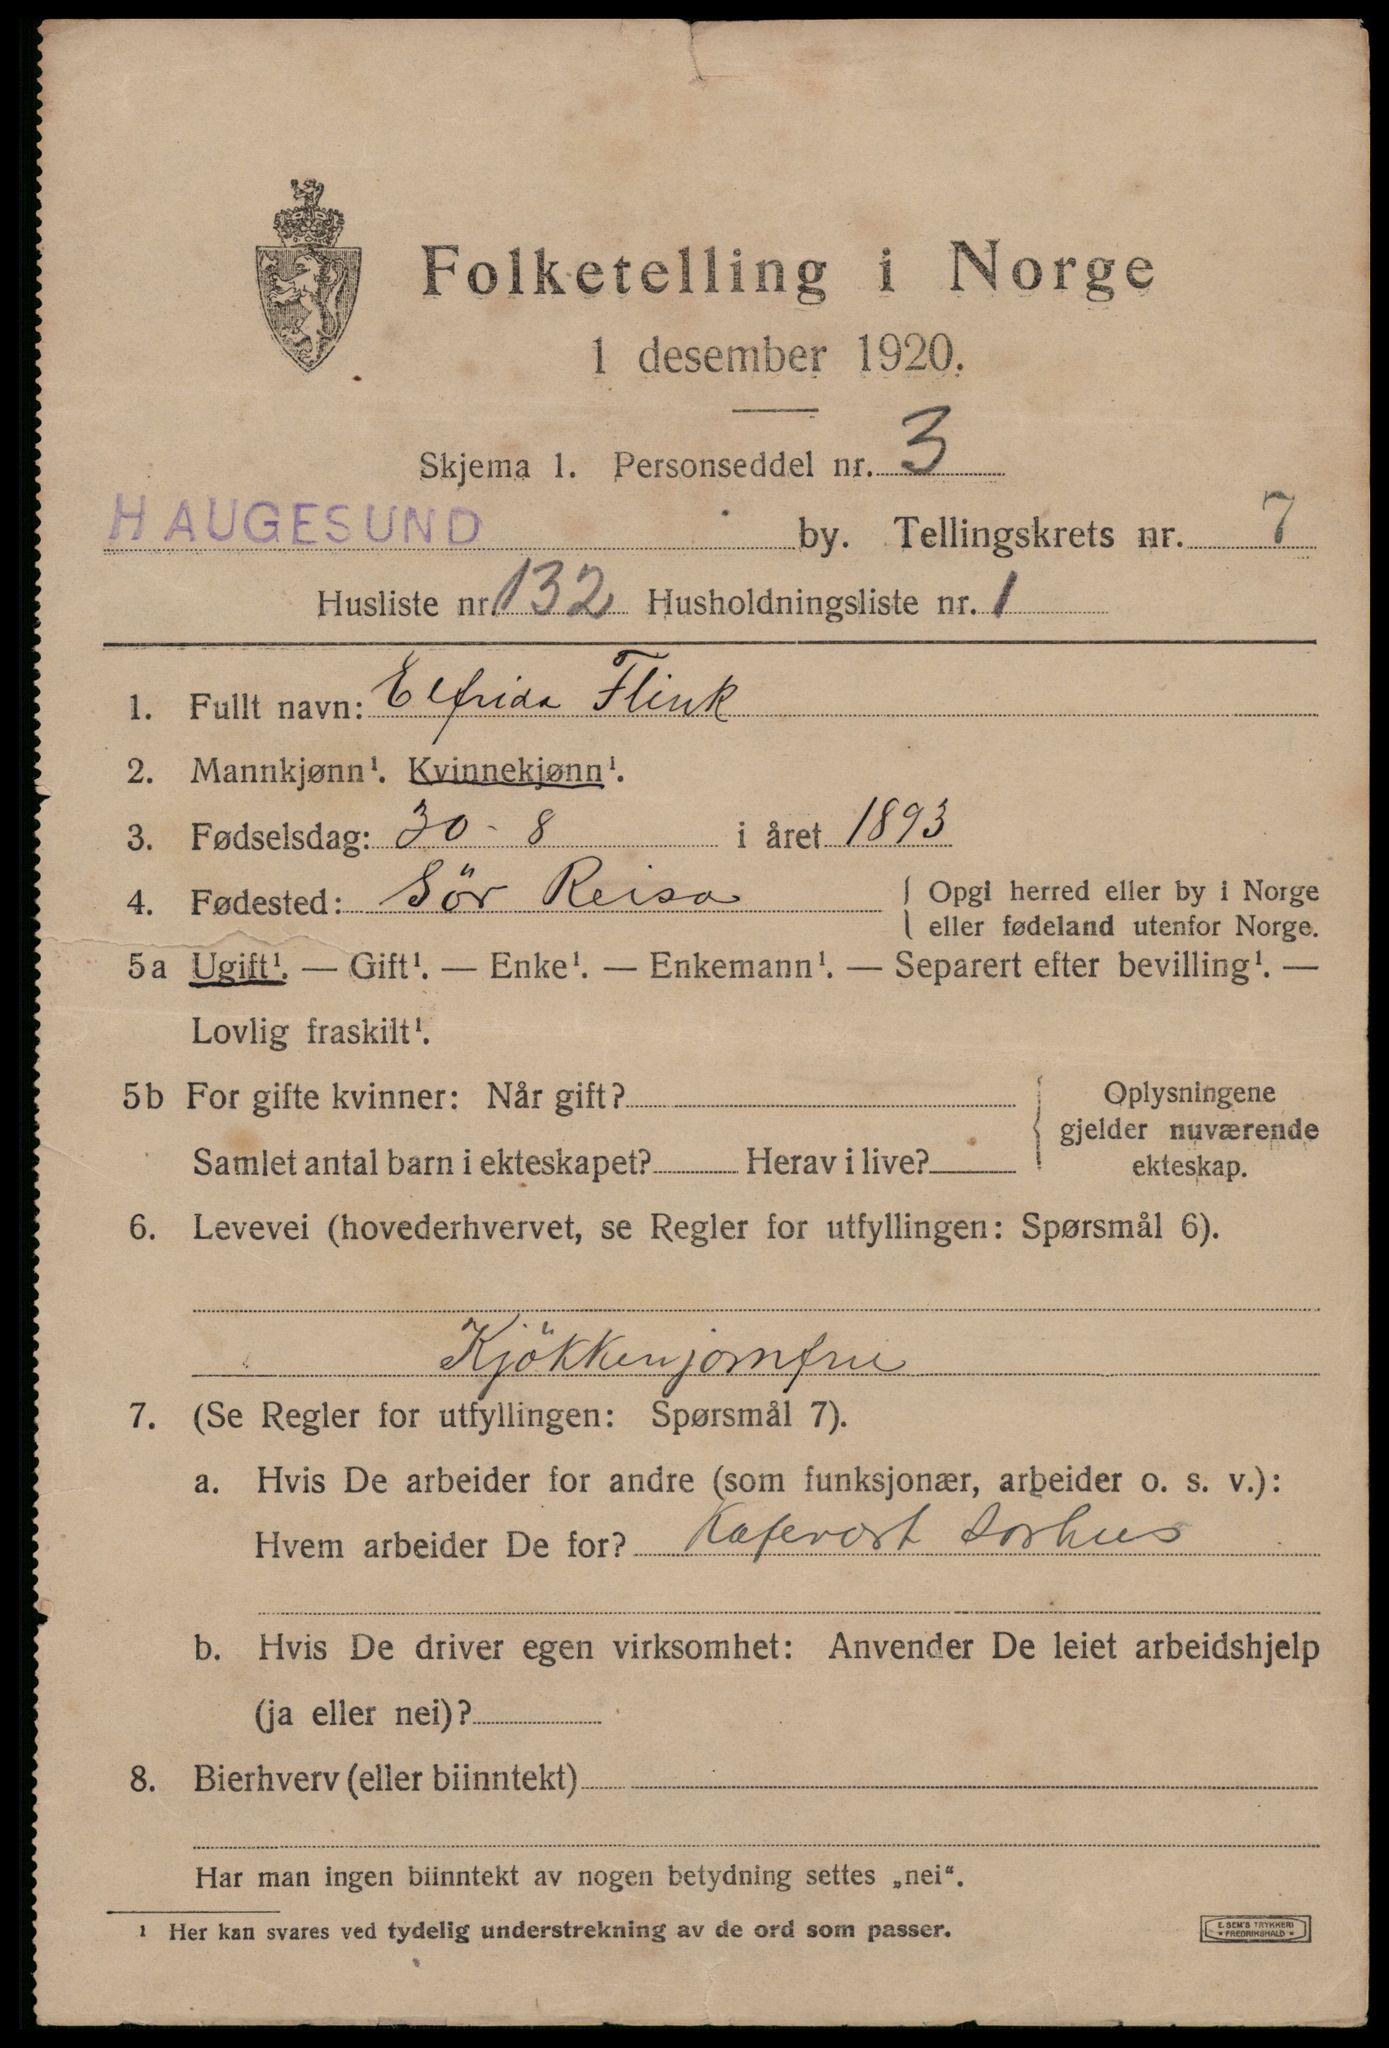 Folketelling i Norge
1 desember 1920.
Skjema 1. Personseddel nr. 3
HAUGESUND by. Tellingskrets nr. 7
Husliste nr. 132 Husholdningsliste nr. 1
1. Fullt navn: Elfrida Flink
2. Mannkjønn¹. Kvinnekjønn¹.
3. Fødselsdag: 30 - 8 i året 1893
4. Fødested: Sör Reisa { Opgi herred eller by i Norge
eller fødeland utenfor Norge.
5a Ugift¹. — Gift¹. — Enke¹. — Enkemann¹. — Separert efter bevilling¹. —
Lovlig fraskilt¹.
5b For gifte kvinner: Når gift? { Oplysningene
gjelder nuværende
Samlet antal barn i ekteskapet? Herav i live? ekteskap.
6. Levevei (hovederhvervet, se Regler for utfyllingen: Spørsmål 6).
Kjökkenjomfru
7. (Se Regler for utfyllingen: Spørsmål 7).
a. Hvis De arbeider for andre (som funksjonær, arbeider o. s. v.):
Hvem arbeider De for? Kafevert
b. Hvis De driver egen virksomhet: Anvender De leiet arbeidshjelp
(ja eller nei)?
8. Bierhverv (eller biinntekt)
Har man ingen biinntekt av nogen betydning settes „nei".
¹ Her kan svares ved tydelig understrekning av de ord som passer.
E. SEM'S TRYKKERI
* FREDRIKSHALD *